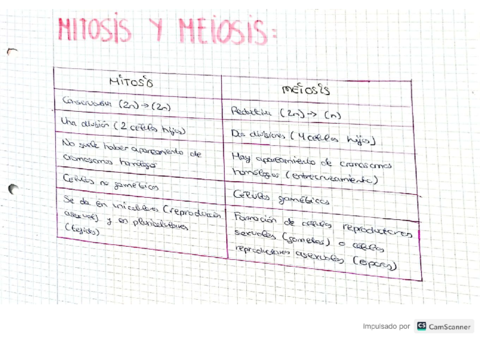 MITOSIS Y MEIOSIS:
MITOSIS
MEIOSIS
Conservadora (2n) → (2n)
Reductora (2n) → (n)
Una división (2 células hijas)
Dos divisiones (4 células hijas)
No suele haber apareamiento de
cromosomas homólogos
Hay apareamiento de cromosomas
homólogos (entrecruzamiento)
Células no gaméticas
Células gaméticas
Se da en unicelulares (reproducción
asexual) y en pluricelulares
(tejidos)
Formación de células reproductoras
sexuales (gametos) o células
reproductoras asexuales (esporas)
Impulsado por CS CamScanner